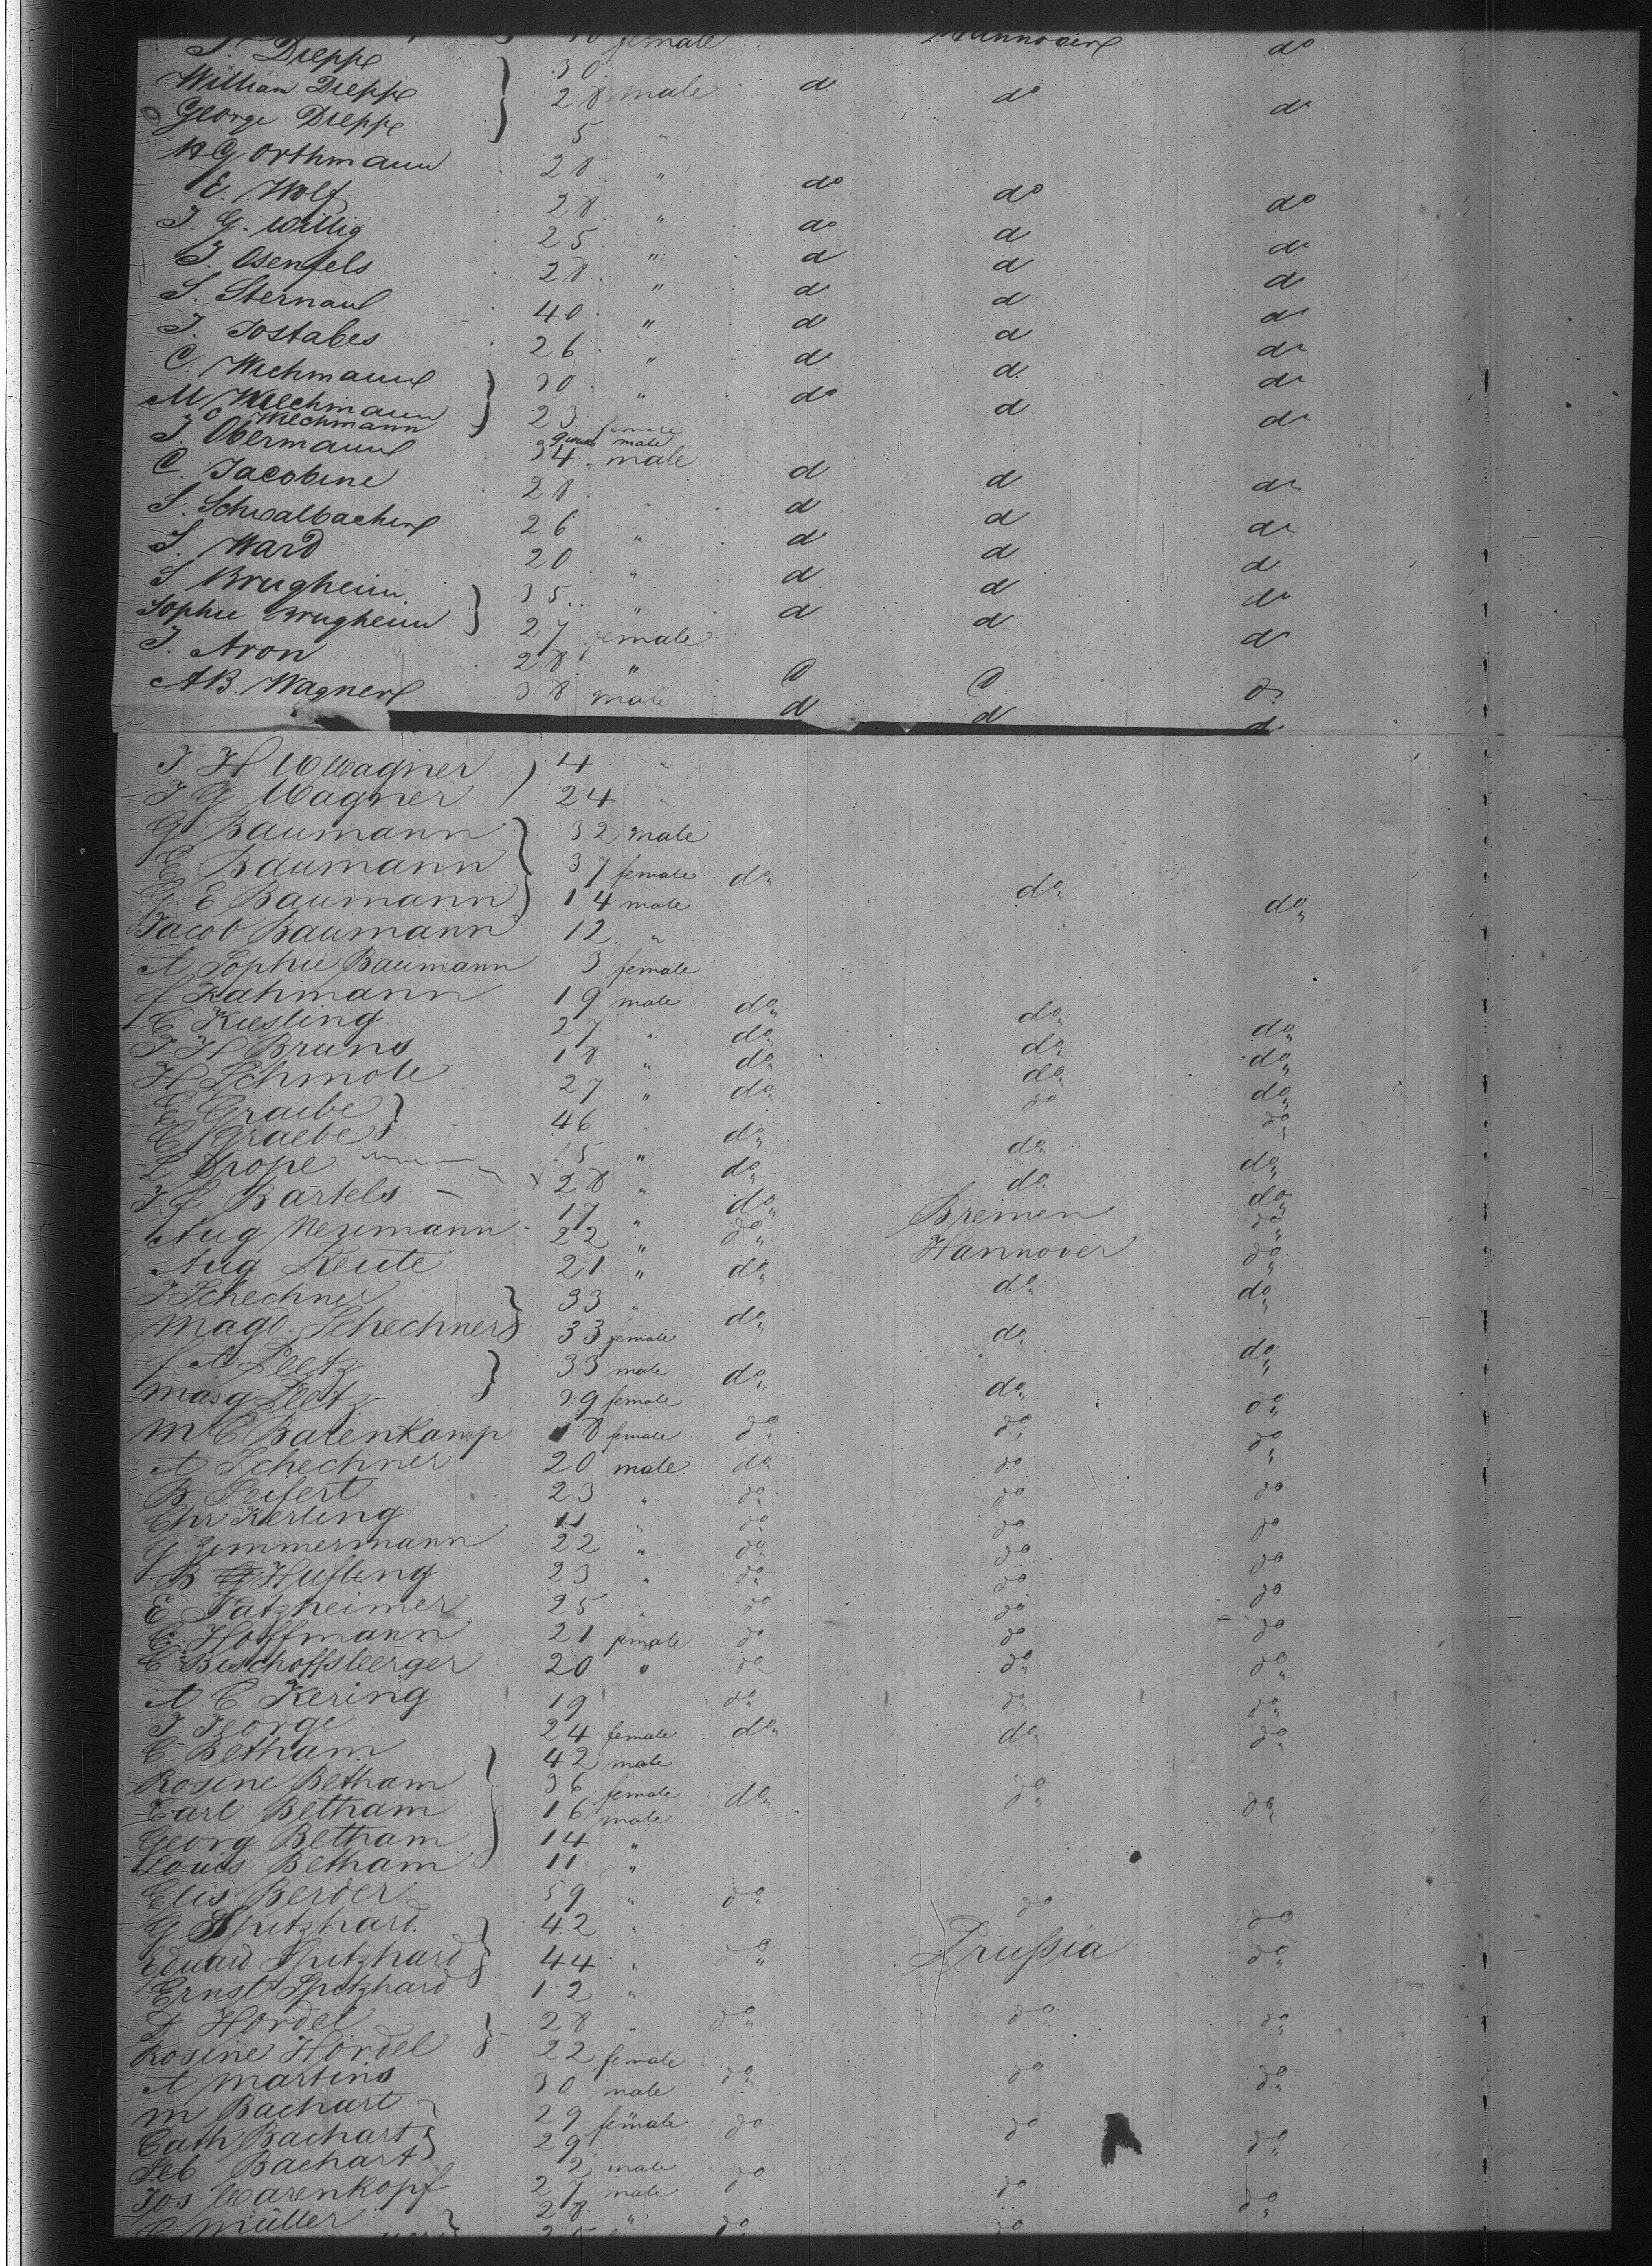 female Hannover do
J. Dieppe 30
William Dieppe 28 male do do do
George Dieppe 5 "
H G Orthmann 28 " do do do
E. Wolf 28 " do do do
J. G. Willig 25 " do do do
J. Osenfels 28 " do do do
S. Sternau 40 " do do do
J. Jostabes 26 " do do do
C. Wichmann 30 " do do do
M Wiechmann 23 female
C Wiechmann male
J. Obermann 34 male do do do
C. Jacobine 28 " do do do
S. Schwalbacher 26 " do do do
S. Ward 20 " do do do
S Brugheim 35 " do do do
Sophie Brugheim 27 female
J. Aron 28 " do do do
AB. Wagner 38 male do do do
J H W Wagner 4 "
J G Wagner 24 "
G Baumann 32 male
E Baumann 37 female do do do
G E Baumann 14 male
Jacob Baumann 12 "
A Sophie Baumann 3 female
f Kahmann 19 male do do do
C Kiesling 27 " do do do
J H Bruns 18 " do do do
H Schmole 27 " do do do
E Graebe 46 " do do do
C Graebe 15 "
L Drope 28 " do do do
J f Bartels 17 " do Bremen do
Aug Neumann 22 " do Hannover do
Aug Keute 21 " do do do
J Schechner 33 " do do do
Magd. Schechner 33 female
f A Leetz 33 male do do do
Marg Leetz 39 female
M C Barenkamp 18 female do do do
A Schechner 20 male do do do
B Seifert 23 " do do do
Chr Kerling 11 " do do do
G Zimmermann 22 " do do do
B Hufling 23 " do do do
E Patzheimer 25 " do do do
C Hoffmann 21 female do do do
C Bischoffsberger 20 " do do do
A C Kering 19 do do do
J George 24 female do do do
C Betham 42 male
Rosine Betham 36 female do do do
Carl Betham 16 male
Georg Betham 14 "
Louis Betham 11 "
Elis Berder 59 " do do do
G Spitzhard. 42 "
Eduard Spitzhard 44 " do Prußia do
Ernst Spitzhard 12 "
D Hordel 28 " do do do
Rosine Hordel 22 female
A Martins 30 male do do do
M Bachart 29 female do do do
Cath Bachart 29
Seb Bachart 2 male
Jos Warenkopf 27 male do do do
C Müller 28 " do do